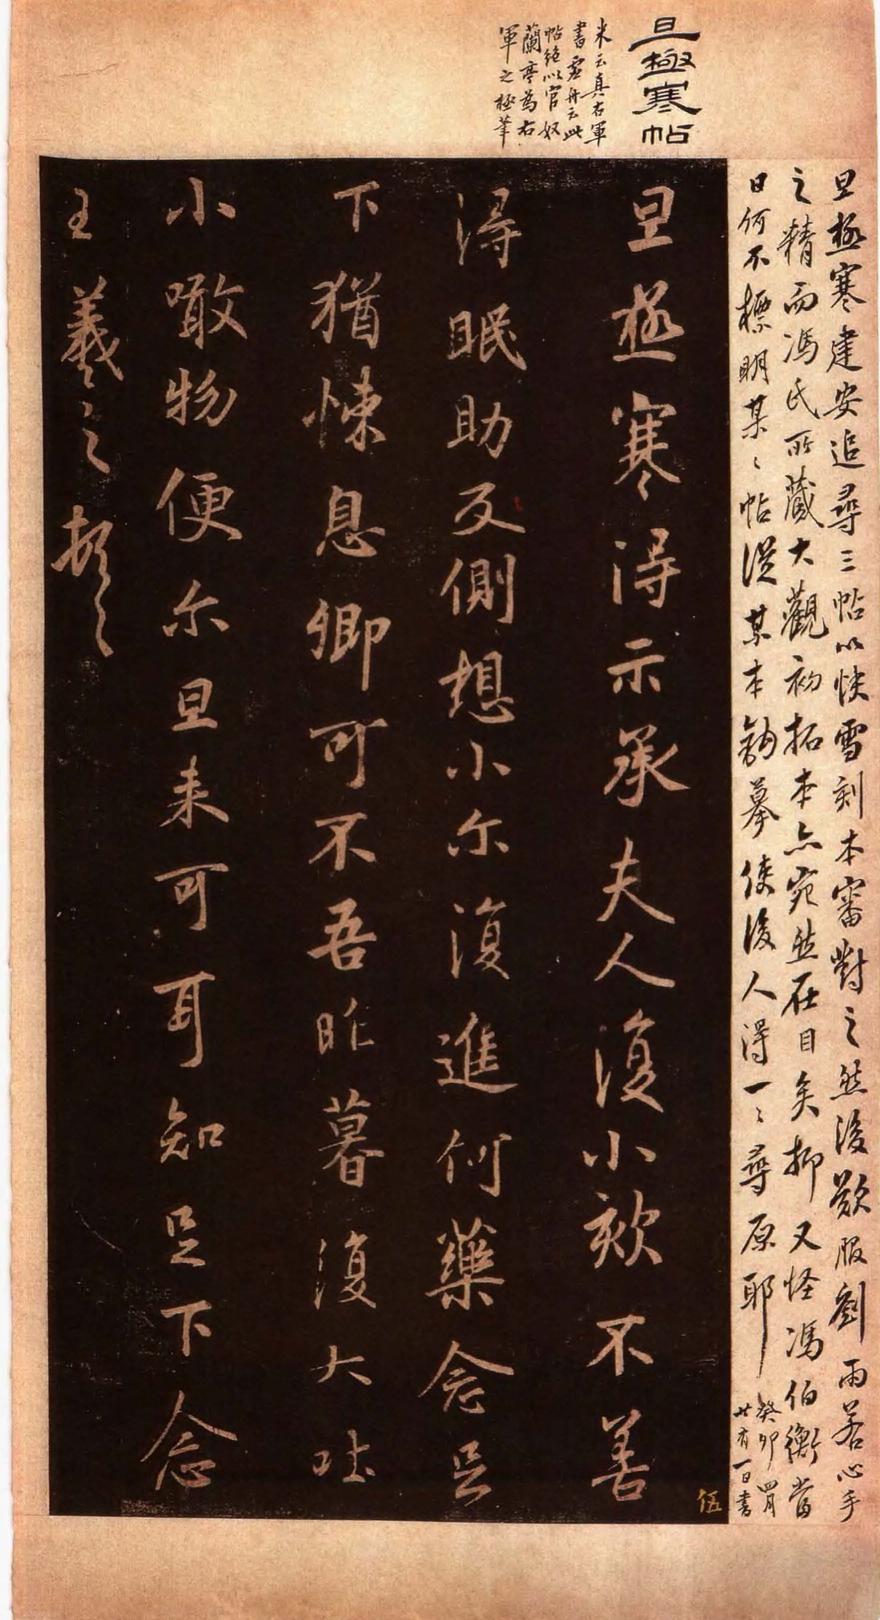 旦極寒帖
米云真右軍
書虛舟云此
帖絕似官奴
蘭亭為右
軍之極筆
旦極寒建安追尋三帖以快雪刻本審對之然後歎服劉雨若心手
之精而馮氏所藏大觀初拓本亦宛然在目矣抑又怪馮伯衡當
日何不標明某〻帖從某本鉤摹使後人得一〻尋原耶
癸卯四月
廿有一日書
旦極寒得示承夫人復小欬不善
得眠助反側想小尔復進何藥念足
下猶悚息卿可不吾昨暮復大吐
小噉物便尔旦来可耳知足下念
王羲之頓〻
伍